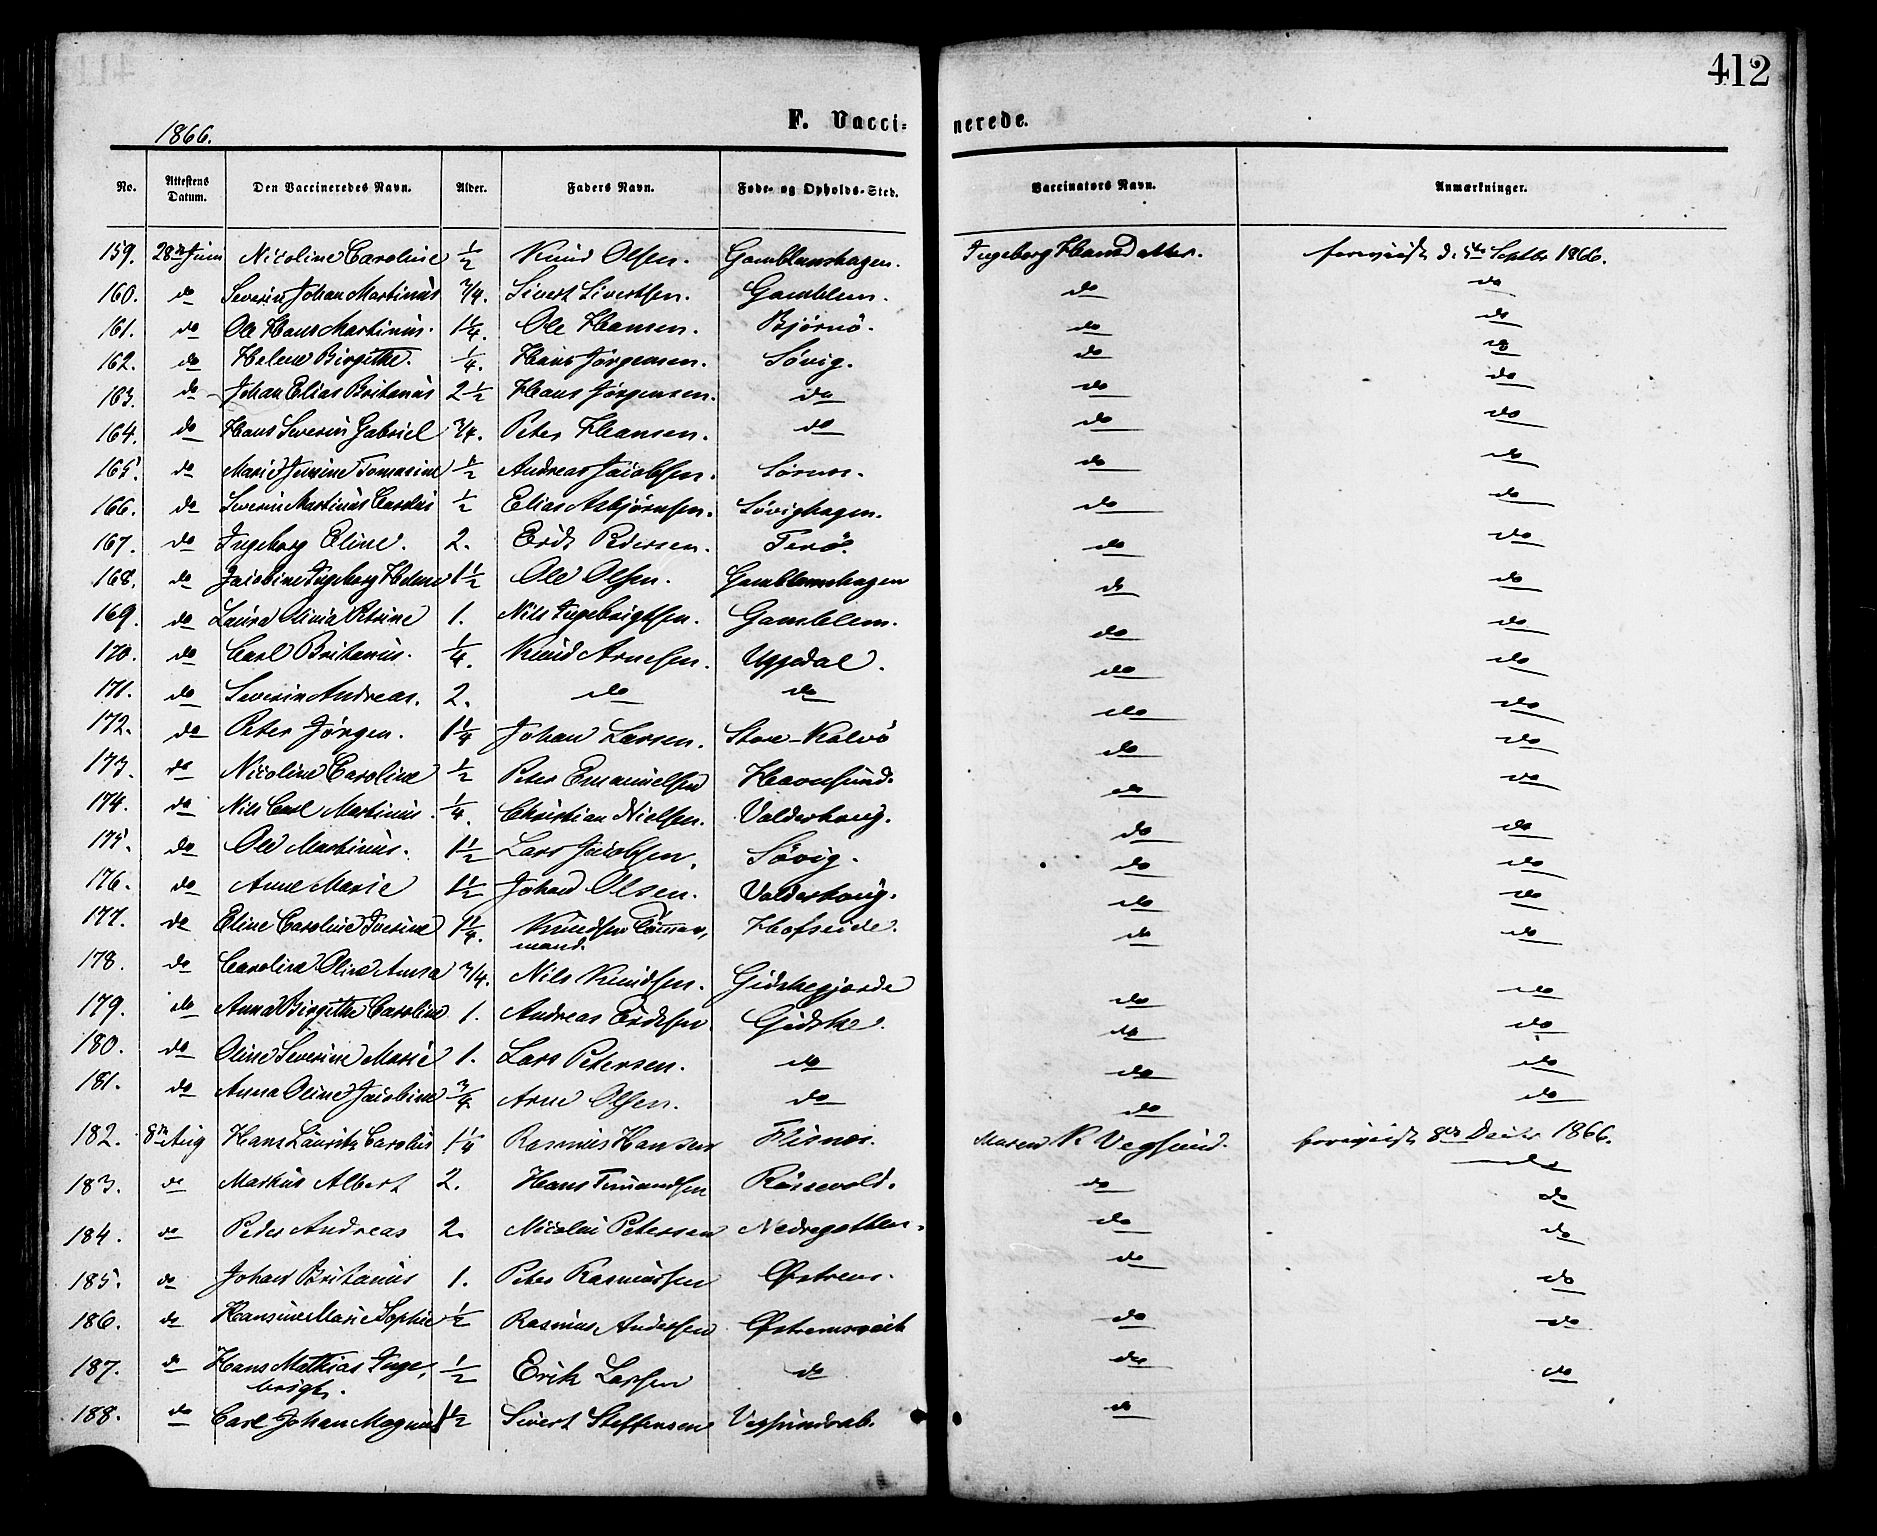 412
1866.
F. Vaccinerede.
No. Attestens Datum. Den Vaccineredes Navn. Alder. Faders Navn. Føde- og Opholds-Sted. Vaccinators Navn. Anmærkninger.
159. 28de Juni Nicoline Caroline 1/2 Knud Olsen. Gamblemshagen. Ingeborg Hansdatter. foreviist d. 5te Septbr 1866.
160. do Severin Johan Martinus 3/4. Sivert Sivertsen. Gamblem. do do
161. do Ole Hans Martinus. 1 1/4. Ole Hansen. Bjørnö. do do
162. do Helene Birgitte. 1/4. Hans Jørgensen. Søvig. do do
163. do Johan Elias Britanus 2 1/2 Hans Jørgensen. do do do
164. do Hans Severin Gabriel 3/4. Peter Hansen. do do do
165. do Marie Tomasine 1/2 Andreas Jacobsen. do do
166. do Severin Martinus Carolus 1/2 Elias Asbjørnsen. Søvighagen. do do
167. do Ingeborg Eline. 2. Erik Pedersen. do do
168. do Jacobine Ingeborg Helene 1 1/2 Ole Olsen. Gamblemshagen do do
169. do Laura Olivia Petrine 1. Nils Ingebrigtsen. Gamblem. do do
170. do Carl Britanus. 1/4. Knud Arnesen. Uggedal. do do
171. do Severin Andreas. 2. do do do do
172. do Peter Jørgen. 1 1/4 Johan Larsen. Store-Kalvö do do
173. do Nicoline Caroline 1/2 Peter Emanuelsen Havnsund. do do
174. do Nils Carl Martinus. 1/4. Christian Nielsen. Valderhoug. do do
175. do Ole Martinus. 1 1/2 Lars Jacobsen. Søvig. do do
176. do Anne Marie 1 1/2 Johan Olsen. Valderhoug. do do
177. do Eline Caroline 1 1/4. Knudsen Tømmermand. Hofseide. do do
178. do Carolina Oline Anna 3/4. Nils Knudsen. Gidskegjerde do do
179. do Anna Birgitte Caroline 1. Andreas Gidske. do do
180. do Oline Severine Marie 1. Lars Petersen. do do do
181. do Anna Oline Jacobine 3/4. Arne Olsen. do do do
182. 8de Aug Hans Lauritz Carolus 1 1/4 Rasmus Hansen Flisnes. Maren K Vegsund. foreviist 8de Decbr 1866.
183. do Markus Albert 2. Hans Rössevold. do do
184. do Peder Andreas 2. Nicolai Petersen Nedregotten. do do
185. do Johan Britanus 1. Peter Rasmussen Østrem. do do
186. do Hansine Marie Sophie 1/2 Rasmus Andersen Østremsveit do do
187. do Hans Mathias Ingebrigt. 1/2 Erik Larssen do do do
188. do Carl Johan Magnus 1 1/2 Sivert Steffensen Vegsundsab. do do